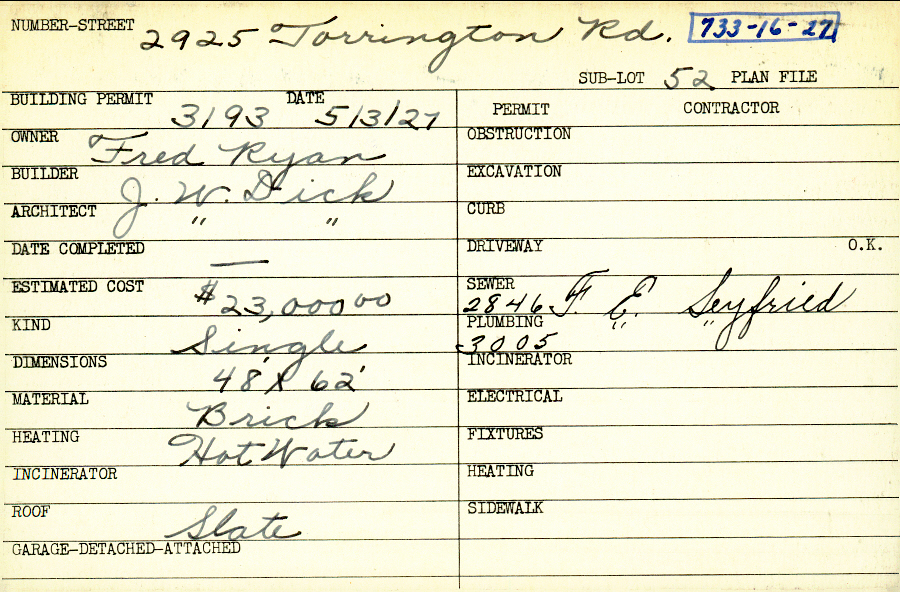 NUMBER-STREET 2925 Torrington Rd. 733-16-27
SUB-LOT 52 PLAN FILE
BUILDING PERMIT 3193 DATE 5/3/27
OWNER Fred Ryan
BUILDER J. W. Dick
ARCHITECT " "
DATE COMPLETED —
ESTIMATED COST $23,000 00
KIND Single
DIMENSIONS 48' X 62'
MATERIAL Brick
HEATING Hot Water
INCINERATOR
ROOF Slate
GARAGE-DETACHED-ATTACHED
PERMIT CONTRACTOR
OBSTRUCTION
EXCAVATION
CURB
DRIVEWAY O.K.
SEWER 2846 F. E. Seyfried
PLUMBING 3005 " "
INCINERATOR
ELECTRICAL
FIXTURES
HEATING
SIDEWALK